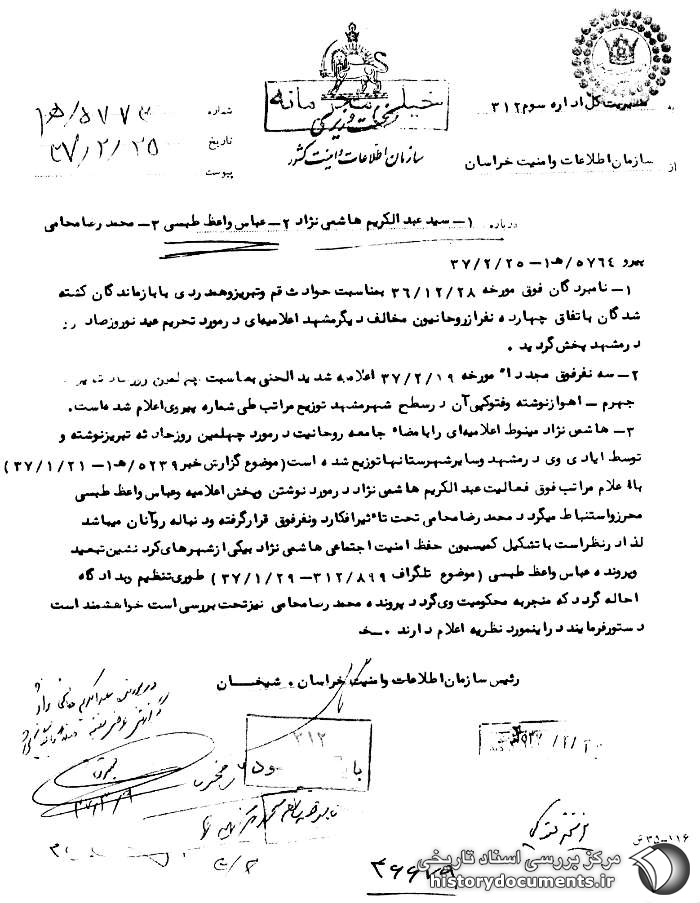 خیلی محرمانه
نخست وزیری
سازمان اطلاعات و امنیت کشور
به مدیریت کل اداره سوم ۳۱۲
از سازمان اطلاعات و امنیت خراسان
شماره ۵۷۷۳/ه‍ ۱
تاریخ ۳۷/۲/۲۵
پیوست
درباره ۱- سید عبدالکریم هاشمی نژاد ۲- عباس واعظ طبسی ۳- محمد رضا محامی
پیرو ۵۷۶۴/ه‍ ۱-۳۷/۲/۲۵
۱- نامبردگان فوق مورخه ۳۶/۱۲/۲۸ بمناسبت حوادث قم و تبریز و همدردی با بازماندگان کشته
شدگان باتفاق چهارده نفر از روحانیون مخالف دیگر مشهد اعلامیه‌ای در مورد تحریم عید نوروز صادر و
در مشهد پخش گردید .
۲- سه نفر فوق مجددا" مورخه ۳۷/۲/۱۹ اعلامیه شدید الحنی بمناسبت چهلمین روز
جهرم - اهواز نوشته و فتوکپی آن در سطح شهر مشهد توزیع مراتب طی شماره پیروی اعلام شده است.
۳- هاشمی نژاد منوط اعلامیه‌ای را با مضاء جامعه روحانیت در مورد چهلمین روز حادثه تبریز نوشته و
توسط ایادی وی در مشهد و سایر شهرستانها توزیع شده است (موضوع گزارش خبر ۵۲۳۹/ه‍ ۱-۳۷/۱/۲۱)
با اعلام مراتب فوق فعالیت عبدالکریم هاشمی نژاد در مورد نوشتن و پخش اعلامیه و عباس واعظ طبسی
محرز و استنباط میگردد محمد رضا محامی تحت تاثیر افکار دو نفر فوق قرار گرفته و دنباله رو آنان میباشد
لذا در نظر است با تشکیل کمیسیون حفظ امنیت اجتماعی هاشمی نژاد بیکی از شهرهای کرد نشین تبعید
و پرونده عباس واعظ طبسی (موضوع تلگراف ۳۱۲/۸۹۹-۳۷/۱/۲۹) طوری تنظیم و بدادگاه
احاله گردد که منجر به محکومیت وی گردد پرونده محمد رضا محامی نیز تحت بررسی است خواهشمند است
دستور فرمایند در اینمورد نظریه اعلام دارند
رئیس سازمان اطلاعات و امنیت خراسان . شیخان
۳۱۲
۳۷/۳/۹
۳۵-۱۱۶ ش
مرکز بررسی اسناد تاریخی
historydocuments.ir